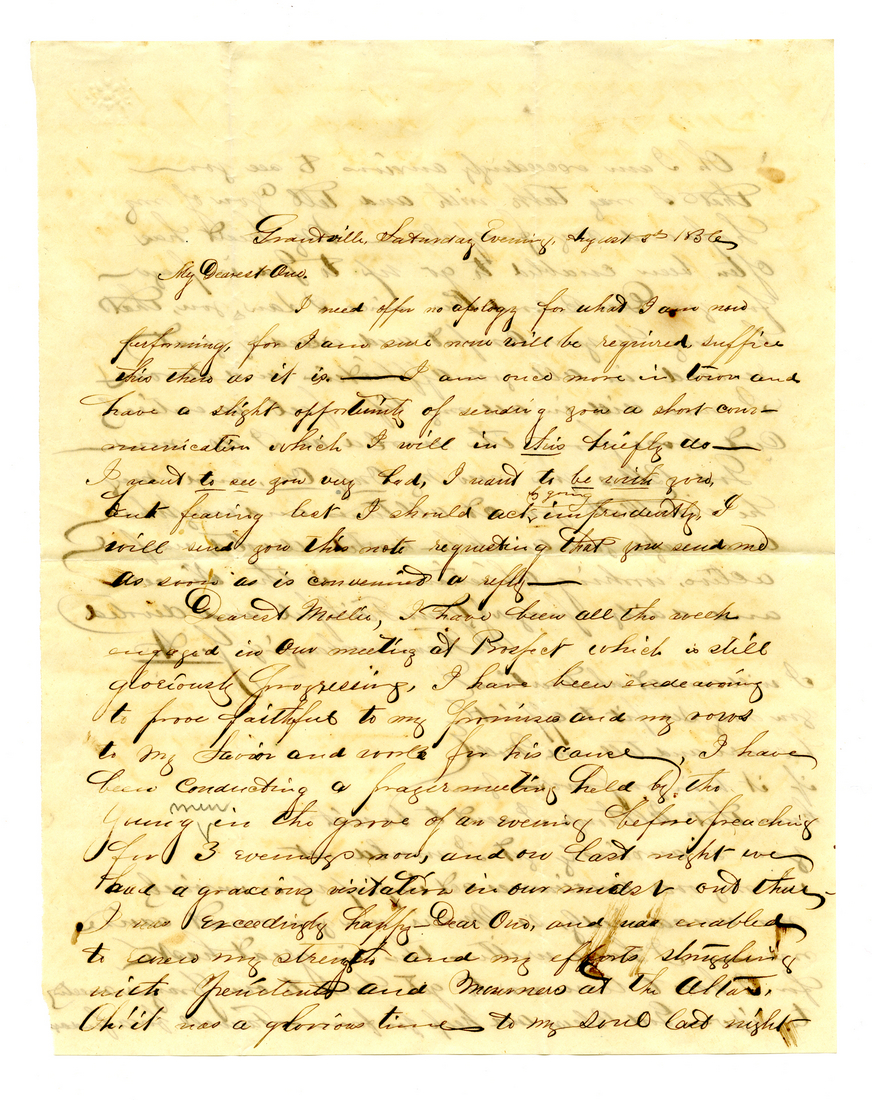 Grantville, Saturday Evening, August 3d 1856
My Dearest One.
I need offer no apology for what I am now
performing, for I am sure none will be required suffice
this then as it is — I am once more in town and
have a slight opportunity of sending you a short com-
munication which I will in this briefly do —
I want to see you very bad, I want to be with you,
but fearing lest I should act, by going imprudently, I
will send you this note requesting that you send me
as soon as is convenient a reply —
Dearest Mollie, I have been all the week
engaged in our meeting at Prospect which is still
gloriously progressing, I have been endeavoring
to prove faithful to my promises and my vows
to my Savior and work for his cause, I have
been conducting a prayermeeting held by the
young men in the grove of an evening before preaching
for 3 evenings now, and on last night we
had a gracious visitation in our midst out there
I was exceedingly happy — Dear One, and was enabled
to my strength and my efforts struggling
with Penitents and Mourners at the Altar,
Oh! it was a glorious time to my soul last night